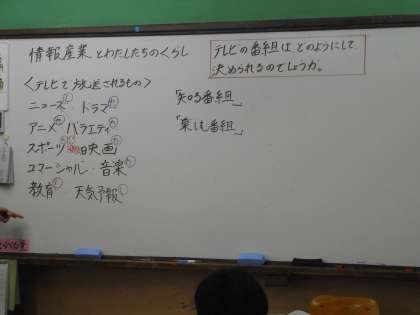 情報産業とわたしたちのくらし
テレビの番組は どのようにして
決められるのでしょうか。
＜テレビで放送されるもの＞
ニュース ドラマ
アニメ バラエティ
スポーツ 映画
コマーシャル 音楽
教育 天気予報
「知る番組」
「楽しむ番組」